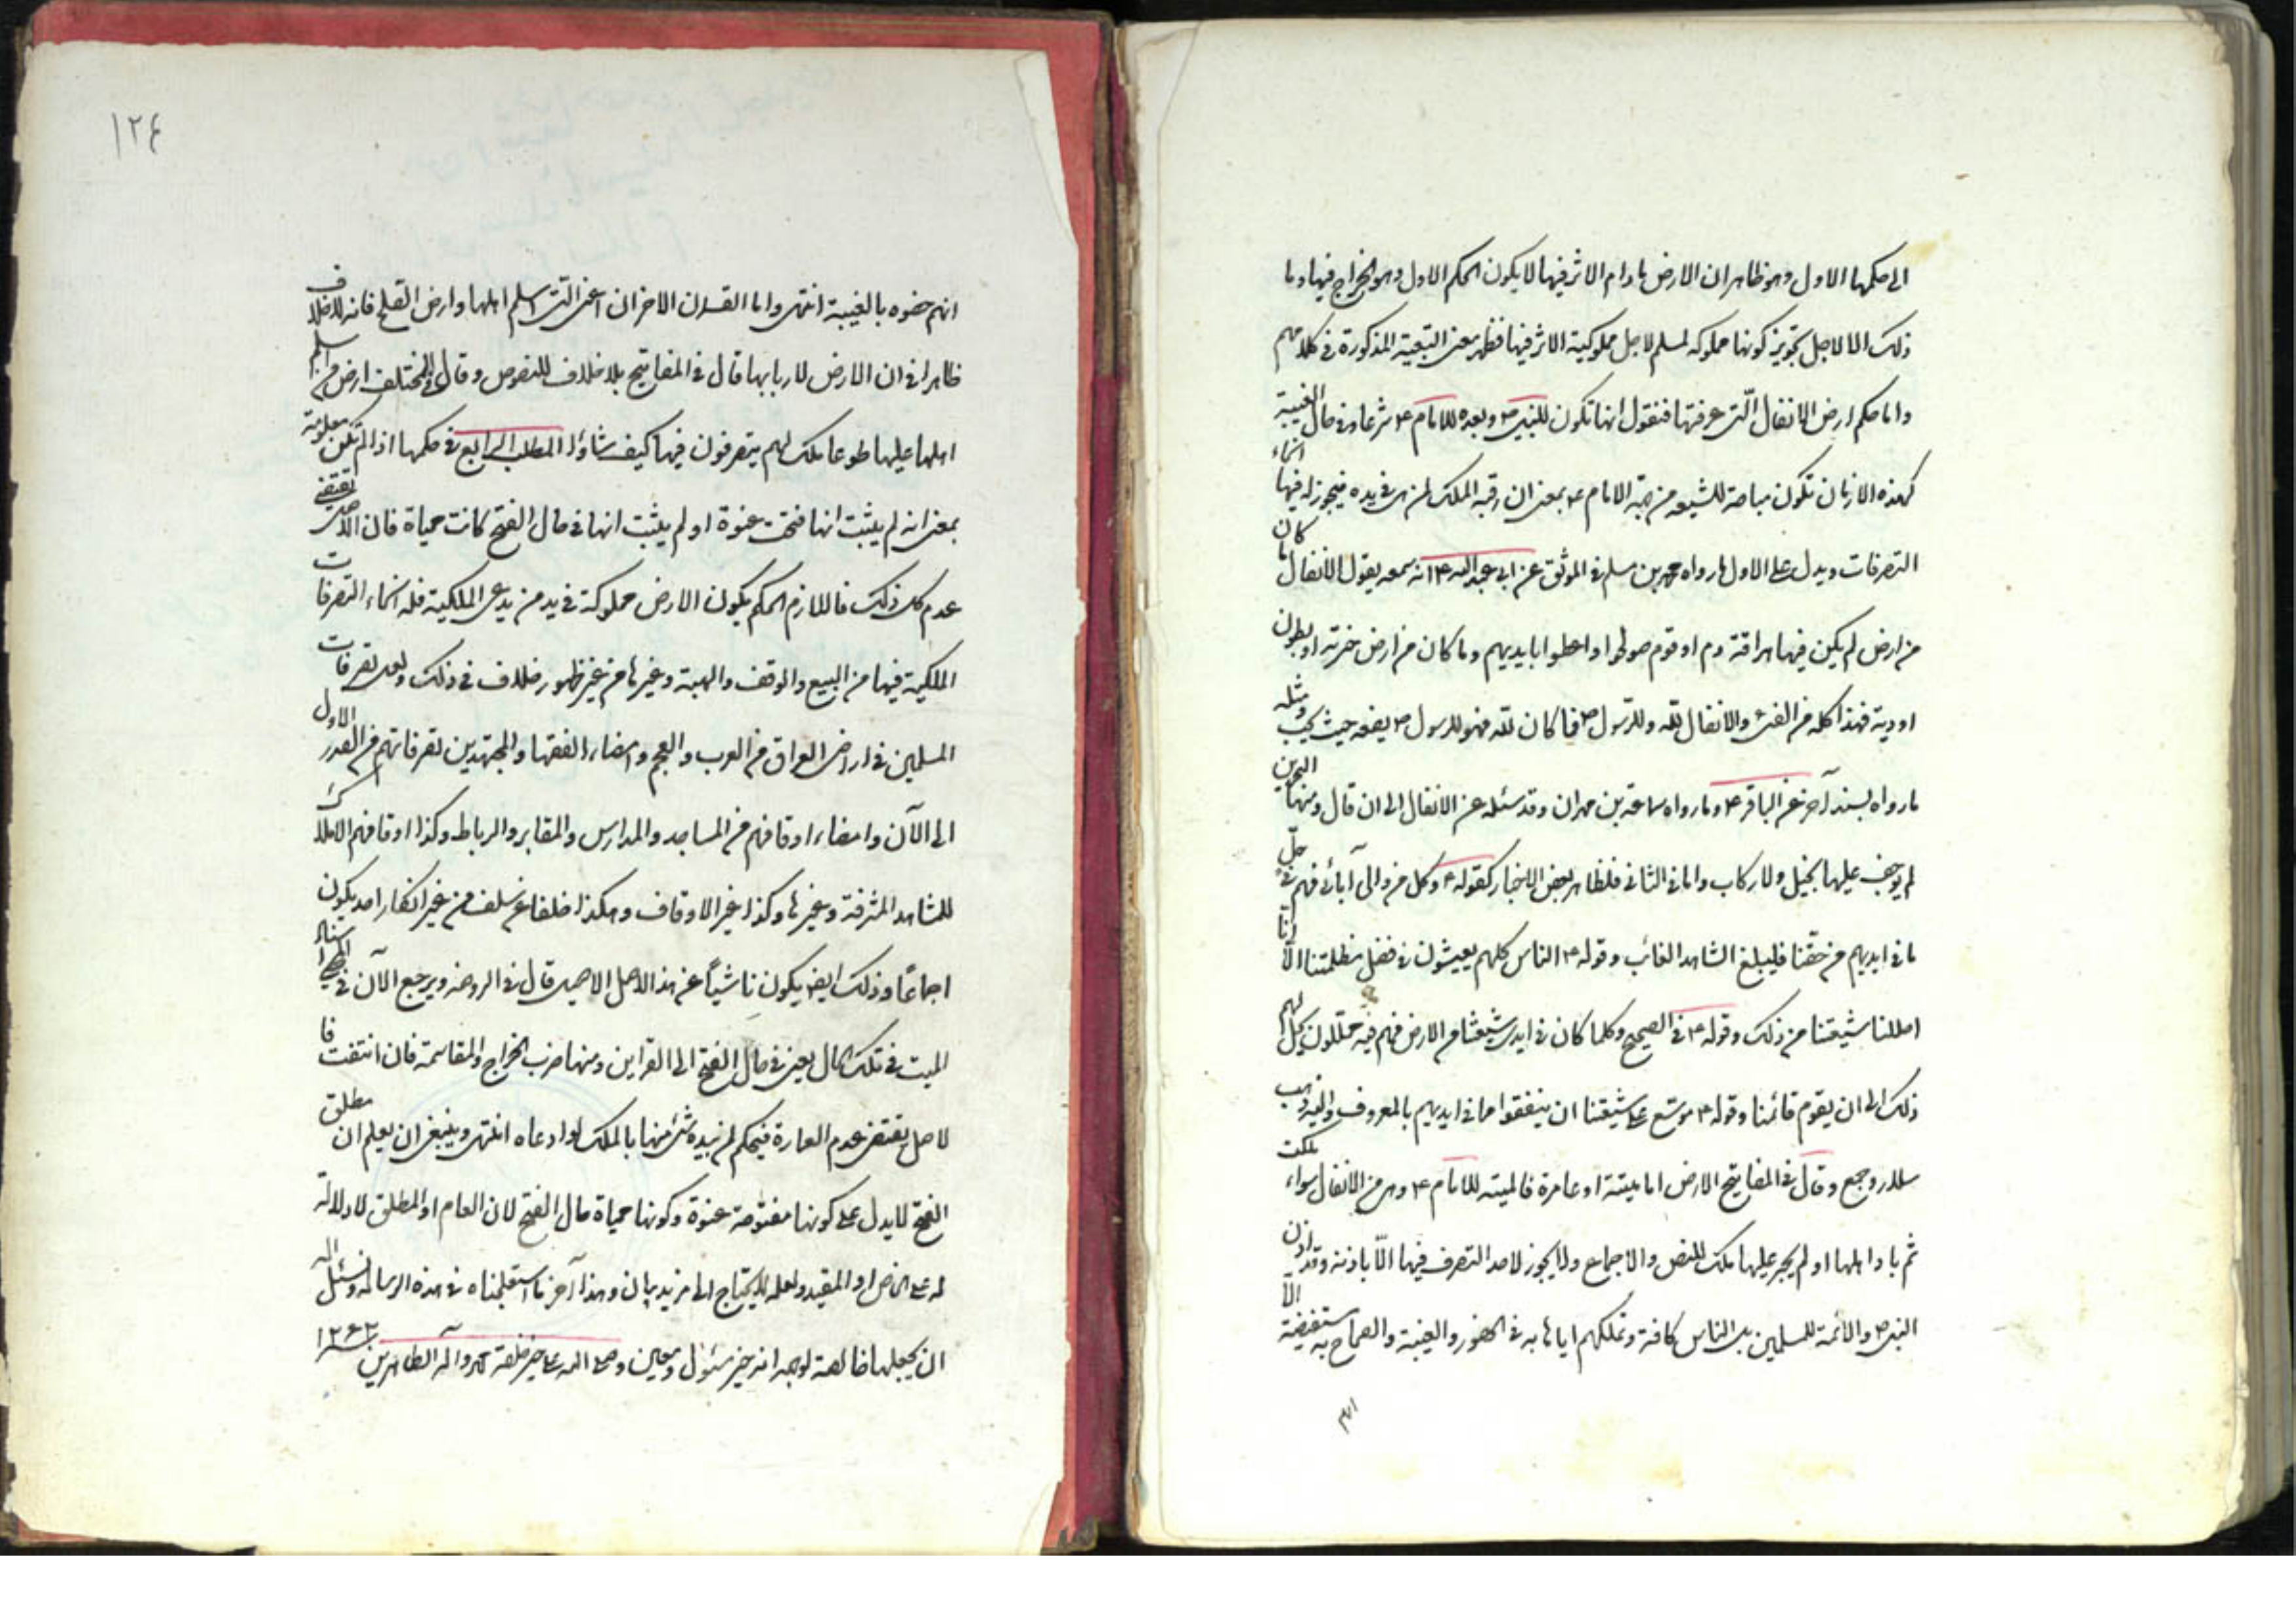 الى حكمها الاول وهو ظاهر ان الارض مادام الاثر فيها لا يكون الحكم الاول وهو الخراج فيها وما
ذلك الا لاجل تجويز كونها مملوكه لمسلم لاجل مملوكية الاثر فيها فظهر معنى التبعية المذكورة في كلامهم
واما حكم ارض الانفال الّتى عرفتها فنقول انها تكون للنبى ص وبعده للامام ع شرعا وفى حال الغيبية
كهذه الازمان تكون مباحة للشيعه من جهة الامام ع بمعنى ان رقبه الملك لمن هى في يده فيجوز له فيها انحاء
التصرفات ويدل على الاول ما رواه محمد بن مسلم فى الموثق عن ابى عبد الله ع انه سمعه يقول الانفال ما كان
من ارض لم يكن فيها هراقة دم او قوم صولحوا او اعطوا بايديهم وما كان من ارض خربة او بطون
اودية فهذا كله من الفئ والانفال لله وللرّسول ص فما كان لله فهو للرسول ص يضعه حيث يحب ومثله
ما رواه بسند آخر عن الباقر ع وما رواه سماعة بن مهران وقد سئله عن الانفال الى ان قال ومنها البحرين
لم يوجف عليها بخيل ولا ركاب واما فى الثانى فلظاهر بعض الاخبار كقوله ع وكل من والى آبائى فهم فى حلّ
ما فى ايديهم من حقّنا فليبلغ الشاهد الغائب وقوله ع الناس كلهم يعيشون فى فضل مظلمتنا الّا انا
احللنا شيعتنا من ذلك وقوله ع فى الصحيح وكلما كان فى ايدى شيعتنا من الارض فهم فيه محللون يحل لهم
ذلك الى ان يقوم قائمنا وقوله ع موسّع على شيعتنا ان ينفقوا مما فى ايديهم بالمعروف واليه ذهب
سلار وجمع وقال فى المفاتيح الارض اما ميتة او عامرة فالميته للامام ع وهى من الانفال سواء ملكت
ثم باد اهلها او لم يجر عليها ملك للنص والاجماع ولا يجوز لاحد التصرف فيها الّا باذنه وقد اذن
النبى ص والائمة للمسلمين بل الناس كافة وتملكهم اياها به فى الحضور والغيبة والصحاح به مستفيضة الّا
انهم
١٢٤
انهم خصوه بالغيبة انتهى واما القسمان الاخران اعنى الّتى اسلم اهلها وارض الصلح فانه لا خلاف
ظاهرا فى ان الارض لاربابها قال فى المفاتيح بلا خلاف للنصوص وقال فى المختلف ارض من اسلم
اهلها عليها طوعا ملك لهم يتصرفون فيها كيف شاؤا المطلب الرابع فى حكمها اذا لم تكن معلومة
بمعنى انه لم يثبت انها فتحت عنوة او لم يثبت انها فى حال الفتح كانت محياة فان الاصل يقتضى
عدم كل ذلك فاللازم الحكم بكون الارض مملوكة فى يد من يدعى الملكية فله انحاء التصرفات
الملكية فيها من البيع والوقف والهبة وغيرها من غير ظهور خلاف فى ذلك ولعل تصرفات
المسلمين فى اراضى العراق من العرب والعجم وامضاء الفقها والمجتهدين تصرفاتهم من الصدر الاول
الى الآن وامضاء اوقافهم من المساجد والمدارس والمقابر والرباط وكذا اوقافهم الاملاك
للمشاهد المشرفة وغيرها وكذا غير الاوقاف وهكذا خلفا عن سلف من غير انكار احد يكون
اجماعًا وذلك ايضا يكون ناشياً عن هذا الاصل الاصيل قال فى الروضه ويرجع الآن فى المحيا منها و
الميت فى تلك الحال يعنى فى حال الفتح الى القراين ومنها ضرب الخراج والمقاسمة فان انتفت فا
لاصل يقتضى عدم العمارة فيحكم لمن بيده شئ منها بالملك لو ادعاه انتهى وينبغى ان يعلم ان مطلق
الفتح لا يدل على كونها مفتوحة عنوة وكونها محياة حال الفتح لان العام او المطلق لا دلالة
له على الخاص او المقيد ولعله لا يحتاج الى مزيد بيان وهذا آخر ما استعجلناه فى هذه الرساله ونسئل الله
ان يجعلها خالصة لوجهه انه خير مسئول ومعين وصلى الله على خير خلقه محمد وآله الطاهرين